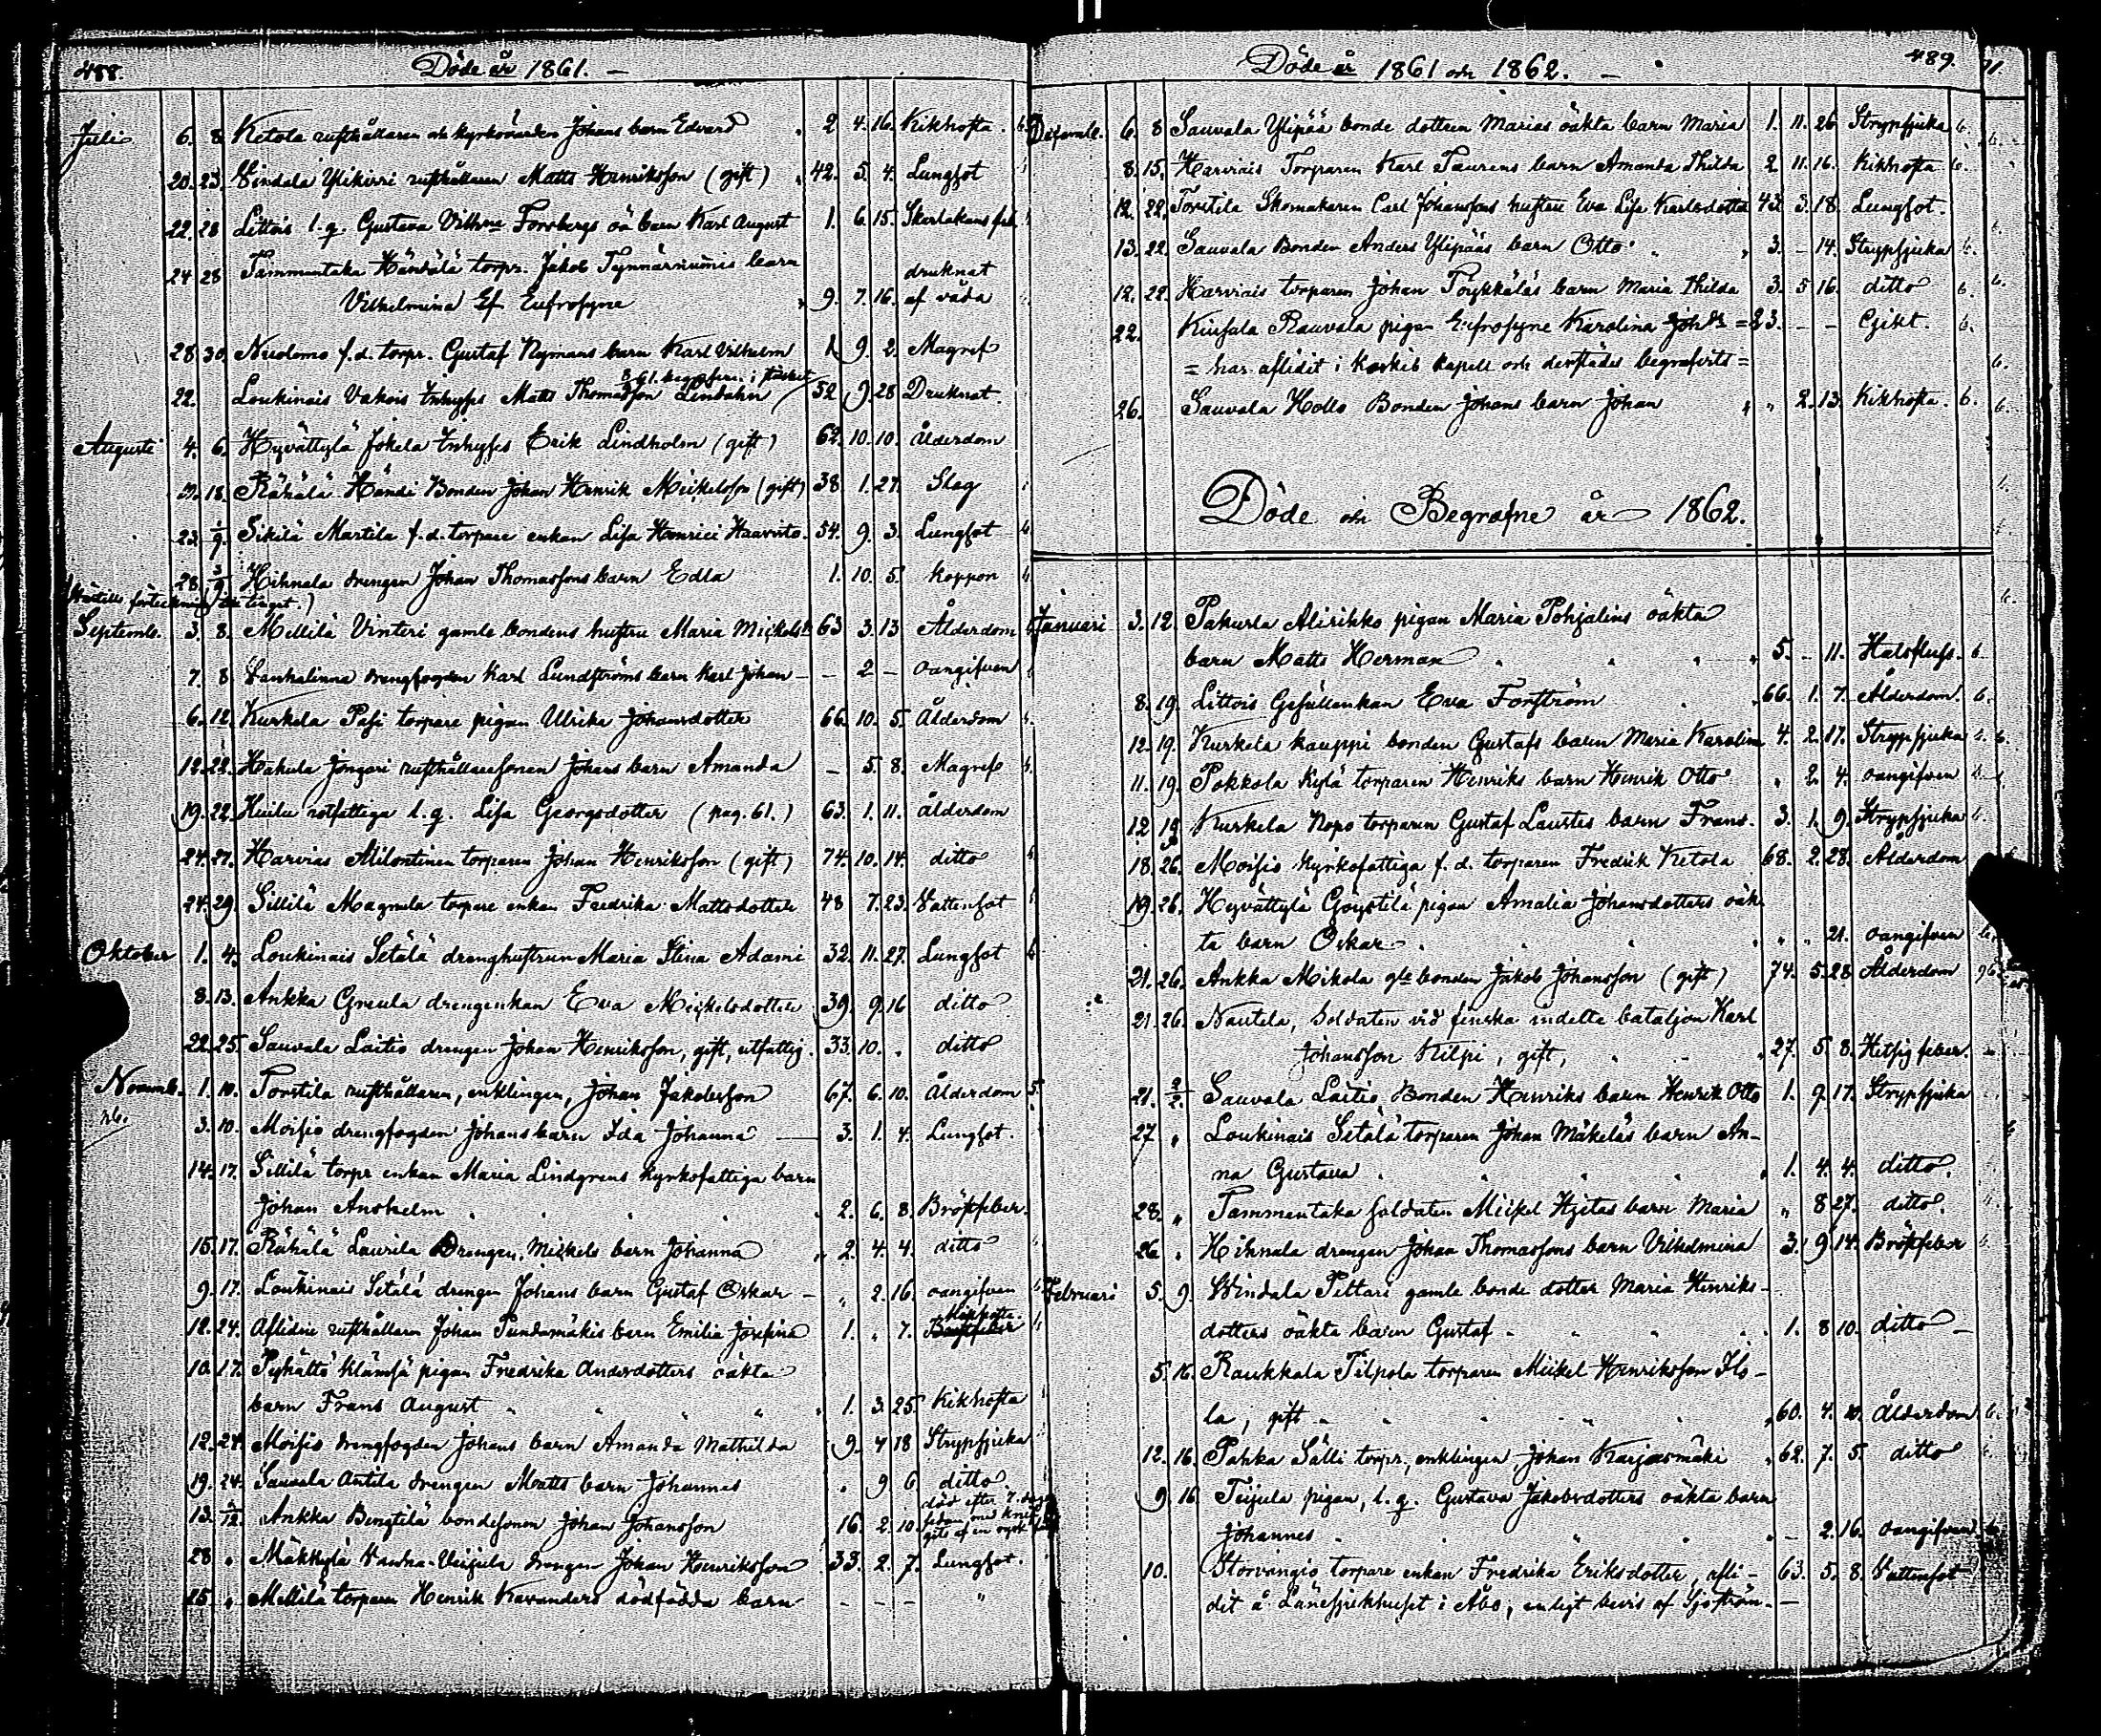 488. Döde år 1861. —
Juli 6. 8 Ketola rusthållaren och kyrkovärden Johans barn Edvard 2 4. 16. Kikhosta.
20. 23. Vindala Ylikirri rusthållaren Matts Henriksson (gift) 42. 5. 4. Lungsot
22. 28 Littois l. q. Gustava Forsbergs oä barn Karl August 1. 6. 15. Skarlakans feb.
24 28 Tammentaka Häntälä torpr. Jakob barn
Vilhelmina Ef Eufrosyne 9. 7. 16. druknat af våda
28. 30. Nuolemo f. d. torpr. Gustaf Nymans barn Karl Vilhelm 1. 9. 2. Magref
22. Loukinais Vakois Inhyses Matts Thomasson 52 9. 28 Druknat.
Augusti 4. 6. Hyvättylä Jokela Inhyses Erik Lindholm (gift) 62. 10. 10. Ålderdom
18. Rähälä Händi Bonden Johan Henrik Mickelsson (gift) 38 1. 27. Slag
23. 1/9. Sikilä Martila f. d. torpare enkan Lisa Henrici Haavisto. 54. 9. 3. Lungsot
28. 3/9 Hihnala drengen Johan Thomassons barn Edla 1. 10. 5. koppon
Septemb. 3. 8. Mellilä Vinteri gamle bondens hustru Maria Mickelsd. 63 3. 13 Ålderdom
7. 8 Vankalinna drengfogden Karl Lundströms barn Karl Johan — — 2 — oangifven
6. 12. Kurkela Pasi torpare pigan Ulrika Johansdotter 66. 10. 5. Ålderdom
12. 22. Hakula Jongari rusthållaresonen Johans barn Amanda — 5. 8. Magref
19. 22. rotfattiga l. q. Lisa Georgsdotter (pag. 61.) 63. 1. 11. ålderdom
24. 27. Harvias Alilontinen torparen Johan Henriksson (gift) 74. 10. 14. ditto
24. 29. Sillilä Magnula torpare enkan Fredrika Mattsdotter 48 7. 23. Vattensot
Oktober 1. 4. Loukinais Setälä drenghustrun Maria Stina Adami 32. 11. 27. Lungsot
8. 13. Ankka Greula drengenkan Eva Mickelsdotter 39. 9. 16 ditto
22. 25. Sauvala Laitio drengen Johan Henriksson, gift, utfattig 33. 10. . ditto
Novemb. 1. 10. Torstila rusthållaren, enklingen, Johan Jakobsson 67. 6. 10. Ålderdom
3. 10. Moisio drengfogden Johans barn Ida Johanna — 3. 1. 4. Lungsot.
14. 17. Sillilä torpr enkan Maria Lindgrens kyrkofattiga barn
Johan Anshelm 2. 6. 8. Bröstfeber.
15. 17. Rähälä Laurila Drengen Mickels barn Johanna 2. 4. 4. ditto
9. 17. Loukinais Setälä drengen Johans barn Gustaf Oskar — „ 2. 16. oangifven
12. 24. Aflidne rusthållaren Johan Pundamäkis barn Emilia Josefina 1. „ 7. Kikhosta
10. 17. Pyhältö Klämsä pigan Fredrika Andersdotters oäkta
barn Frans August 1. 3. 25. Kikhosta
12. 24. Moisio drengfogden Johans barn Amanda Mathilda 9. 4 18 Strypsjuka
19. 24. Sauvala Antila drengen Matts barn Johannes . 9 6 ditto.
13. 2/12. Ankka Bengtilä bondesonen Johan Johansson 16. 2. 10. död efter 7. dagar
28 „ Mäkkylä drengen Johan Henriksson 33. 2. 7. Lungsot.
25. „ Mellilä torparen Henrik Kavanders dödfödda barn — — — "
Döde år 1861 och 1862. — 489.
Decemb. 6. 8 Sauvala Ylipää bonde dottren Marias oäkta barn Maria 1. 11. 26 Strypsjuka
8. 15. Harviais Torparen Karl Taurens barn Amanda Thilda 2 11. 16. Kikhosta
12. 22. Torstila Skomakaren Carl Johanssons hustru Eva Lisa Karlsdotter 43. 3. 18. Lungsot.
13. 22. Sauvala Bonden Anders Ylipääs barn Otto 3. — 14. Strypsjuka
12. 22. Harviais torparen Johan Pöykkäläs barn Maria Thilda 3. 5 16. ditto
22. Rauvala pigan Eufrosyne Karolina Johds = 23. — — Gikt.
= har aflidit i Karkis kapell och derstädes begrafvits =
26. Sauvala Hollo Bonden Johans barn Johan „ 2. 13. Kikhosta.
Döde och Begrafne år 1862.
Januari 3. 12. Pakurla Alirihko pigan Maria Pohjalins oäkta
barn Matts Herman 5. — 11. Halsfluss.
8. 19. Littois Gesällenkan Eva Forsström 66. 1. 7. Ålderdom.
12. 19. Kurkela Kauppi bonden Gustafs barn Maria Karolina 4. 2. 17. Strypsjuka
11. 19. Pokkola Kylä torparen Henriks barn Henrik Otto „ 2. 4. oangifven
12 19. Kurkela Nopo torparen Gustaf Laustes barn Frans. 3. 1. 9. Strypsjuka
18. 26. Moisio kyrkofattiga f. d. torparen Fredrik Ketola 68. 2. 28. Ålderdom
19. 26. Hyvättylä Göystilä pigan Amalia Johansdotters oäk-
ta barn Oskar „ „ 21. oangifven
21. 26. Ankka Mikola gle bonden Jakob Johansson (gift) 74. 5. 28 Ålderdom
21. 26. Nautela, Soldaten vid finska indelta bataljon Karl
Johansson Kilpi, gift, 27. 5 8. Hetsig feber.
21. 2/2. Sauvala Laitio Bonden Henriks barn Henrik Otto 1. 9. 17. Strypsjuka
27 „ Loukinais Setälä torparen Johan Mäkeläs barn An-
na Gustava 1. 4. 4. ditto.
28. „ Tammentaka soldaten Mickel barn Maria „ 8 27. ditto.
26 „ Hihnala drengen Johan Thomassons barn Vilhelmina 3. 9 14. Bröstfeber
Februari 5. 9. Windala Pittari gamle bonde dotter Maria Henriks-
dotters oäkta barn Gustaf 1. 8 10. ditto —
5. 16. Raukkala Tilpola torparen Mickel Henriksson Ilo-
la, gift 60. 4. ålderdom
12. 16. Pahka Sälli torpr, enklingen Johan Karjasmäki 62. 7. 5. ditto
9. 16. Teijula pigan, l. q. Gustava Jakobsdotters oäkta barn
Johannes — 2. 16. oangifven
10. Storvängio torpare enkan Fredrika Eriksdotter, afli- 63. 5. 8. Vattensot
dit å Länesjukhuset i Åbo, enligt bevis af Sjöström. —